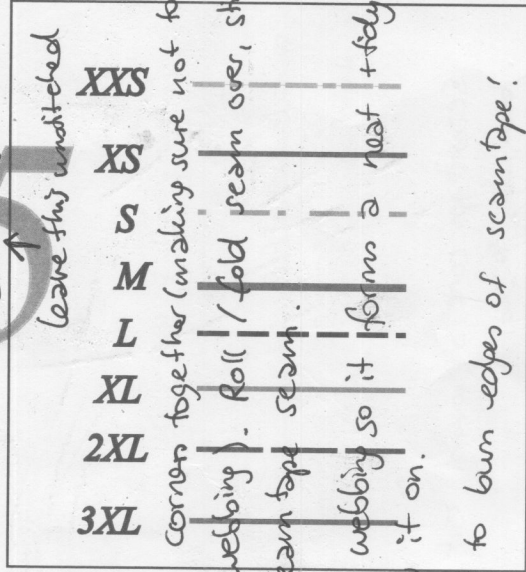 XXS
XS
S
M
L
XL
2XL
3XL
leave this unstitched
corners together (making sure not to
webbing). Roll / fold seam over, st
eam tape seam.
webbing so it forms a neat + tidy
it on.
to burn edges of seamtape!